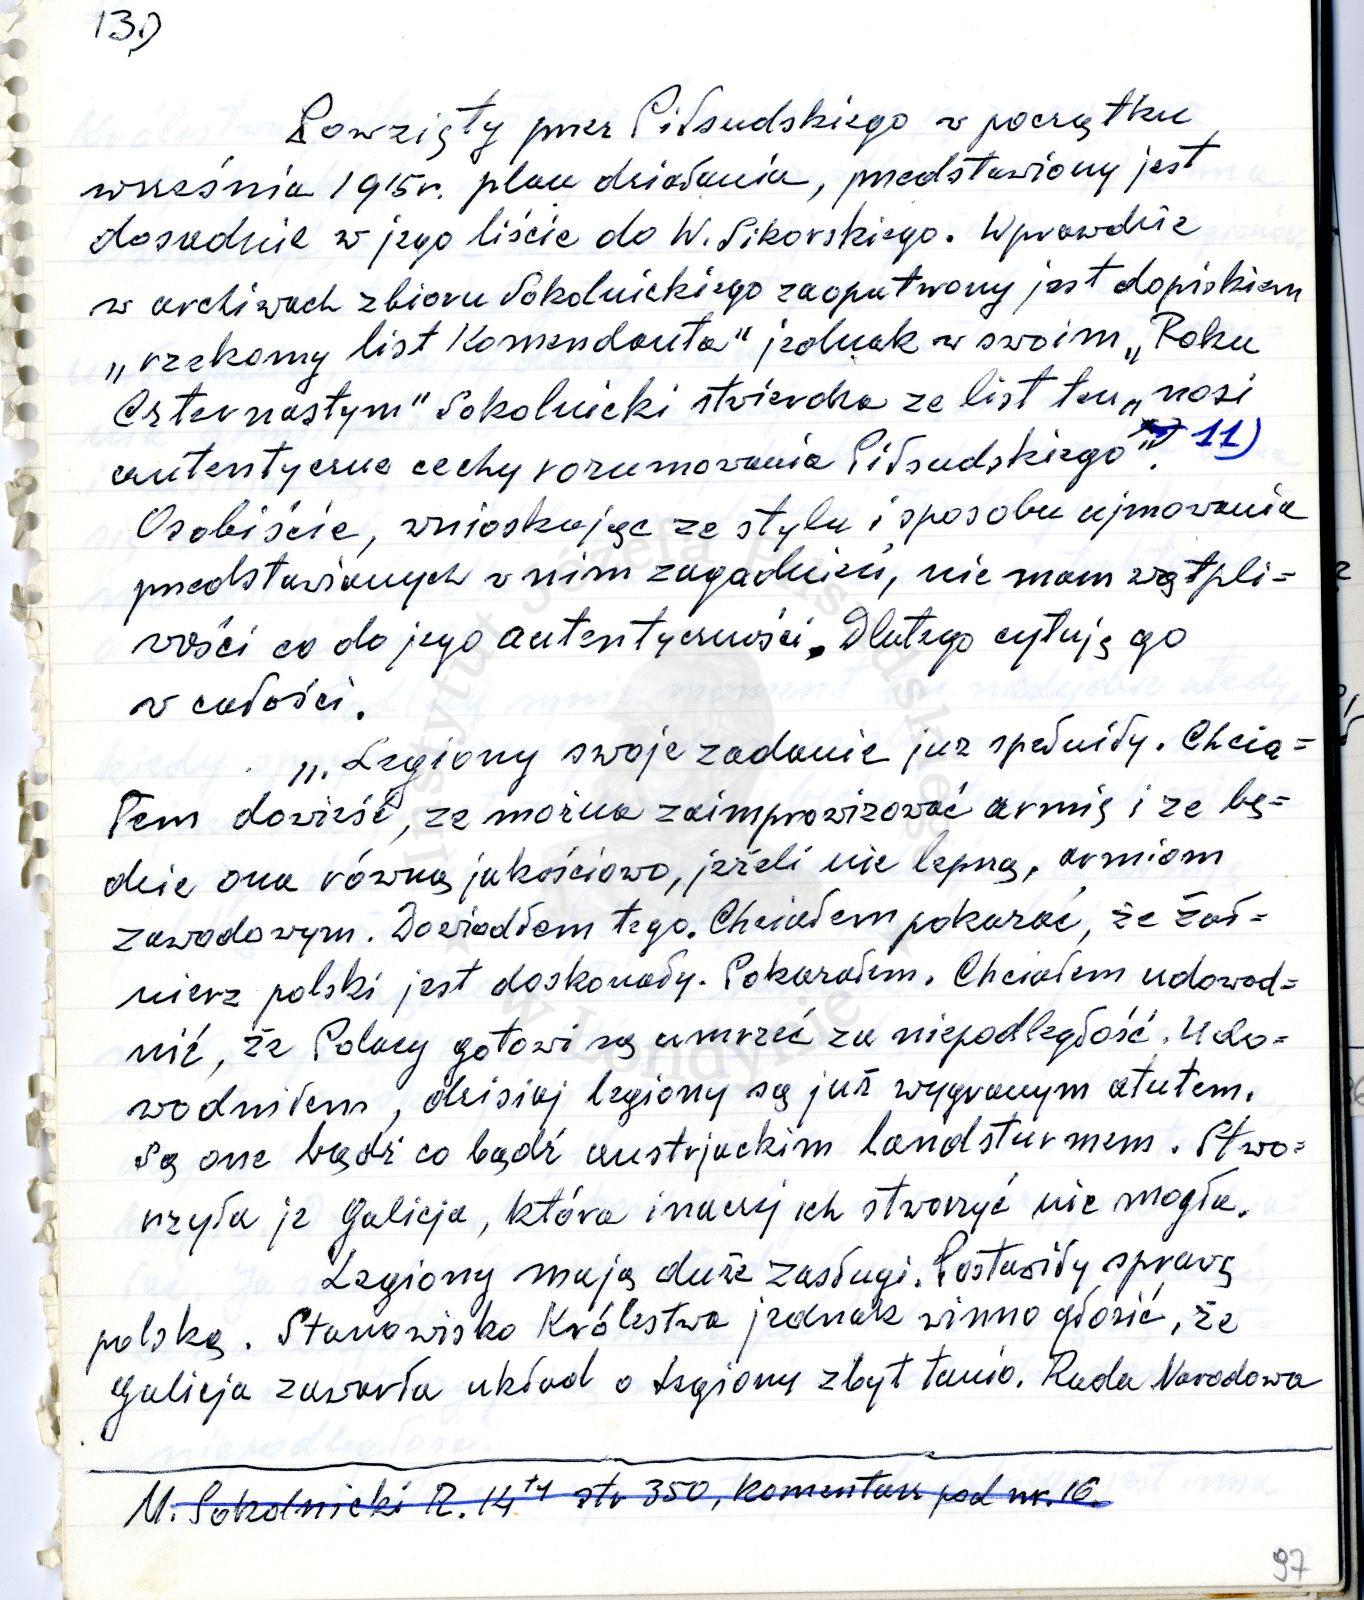 13.)
Powzięty przez Piłsudskiego w początku
września 1915r. plan działania, przedstawiony jest
dosadnie w jego liście do W. Sikorskiego. Wprawdzie
w archiwach zbioru Sokolnickiego zaopatrzony jest dopiskiem
„rzekomy list Komendanta" jednak w swoim „Roku
Czternastym" Sokolnicki stwierdza ze list ten „nosi
autentyczne cechy rozumowania Piłsudskiego". 11)
Osobiście, wnioskując ze stylu i sposobu ujmowania
przedstawianych w nim zagadnień, nie mam wątpli=
wości co do jego autentyczności. Dlatego cytuję go
w całości.
„Legiony swoje zadanie już spełniły. Chcia=
łem dowieść, że można zaimprowizować armię i że bę=
dzie ona równą jakościowo, jeżeli nie lepszą, armiom
zawodowym. Dowiodłem tego. Chciałem pokazać, że żoł=
nierz polski jest doskonały. Pokazałem. Chciałem udowod=
nić, że Polacy gotowi są umrzeć za niepodległość. Udo=
wodniłem, dzisiaj legiony są już wygranym atutem.
Są one bądź co bądź austrjackim landsturmem. Stwo=
rzyła je Galicja, która inaczej ich stworzyć nie mogła.
Legiony mają duże zasługi. Postawiły sprawę
polską. Stanowisko Królestwa jednak winno głosić, że
Galicja zawarła układ o Legiony zbyt tanio. Rada Narodowa
M. Sokolnicki R. 14ty str 350, komentarz pod nr. 16.
97
Instytut Józefa Piłsudskiego
w Londynie